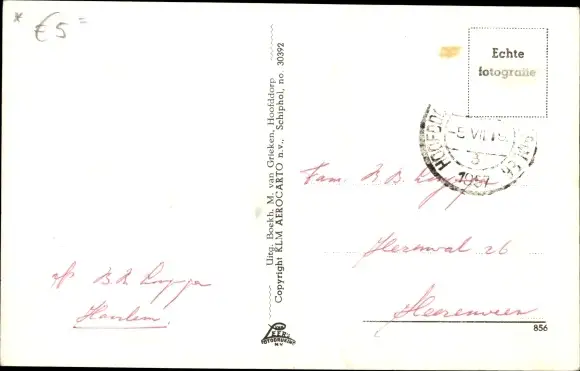 * €5 =
Echte
fotografie
HOOFDDORP
-5 VII 19
3
1957
Fam.
Heerenwal 26
Heerenveen
Haarlem.
Uitg. Boekh. M. van Grieken, Hoofddorp
Copyright KLM AEROCARTO n.v., Schiphol, no. 30392
LEER'S
FOTODRUKKERIJ
N.V.
856